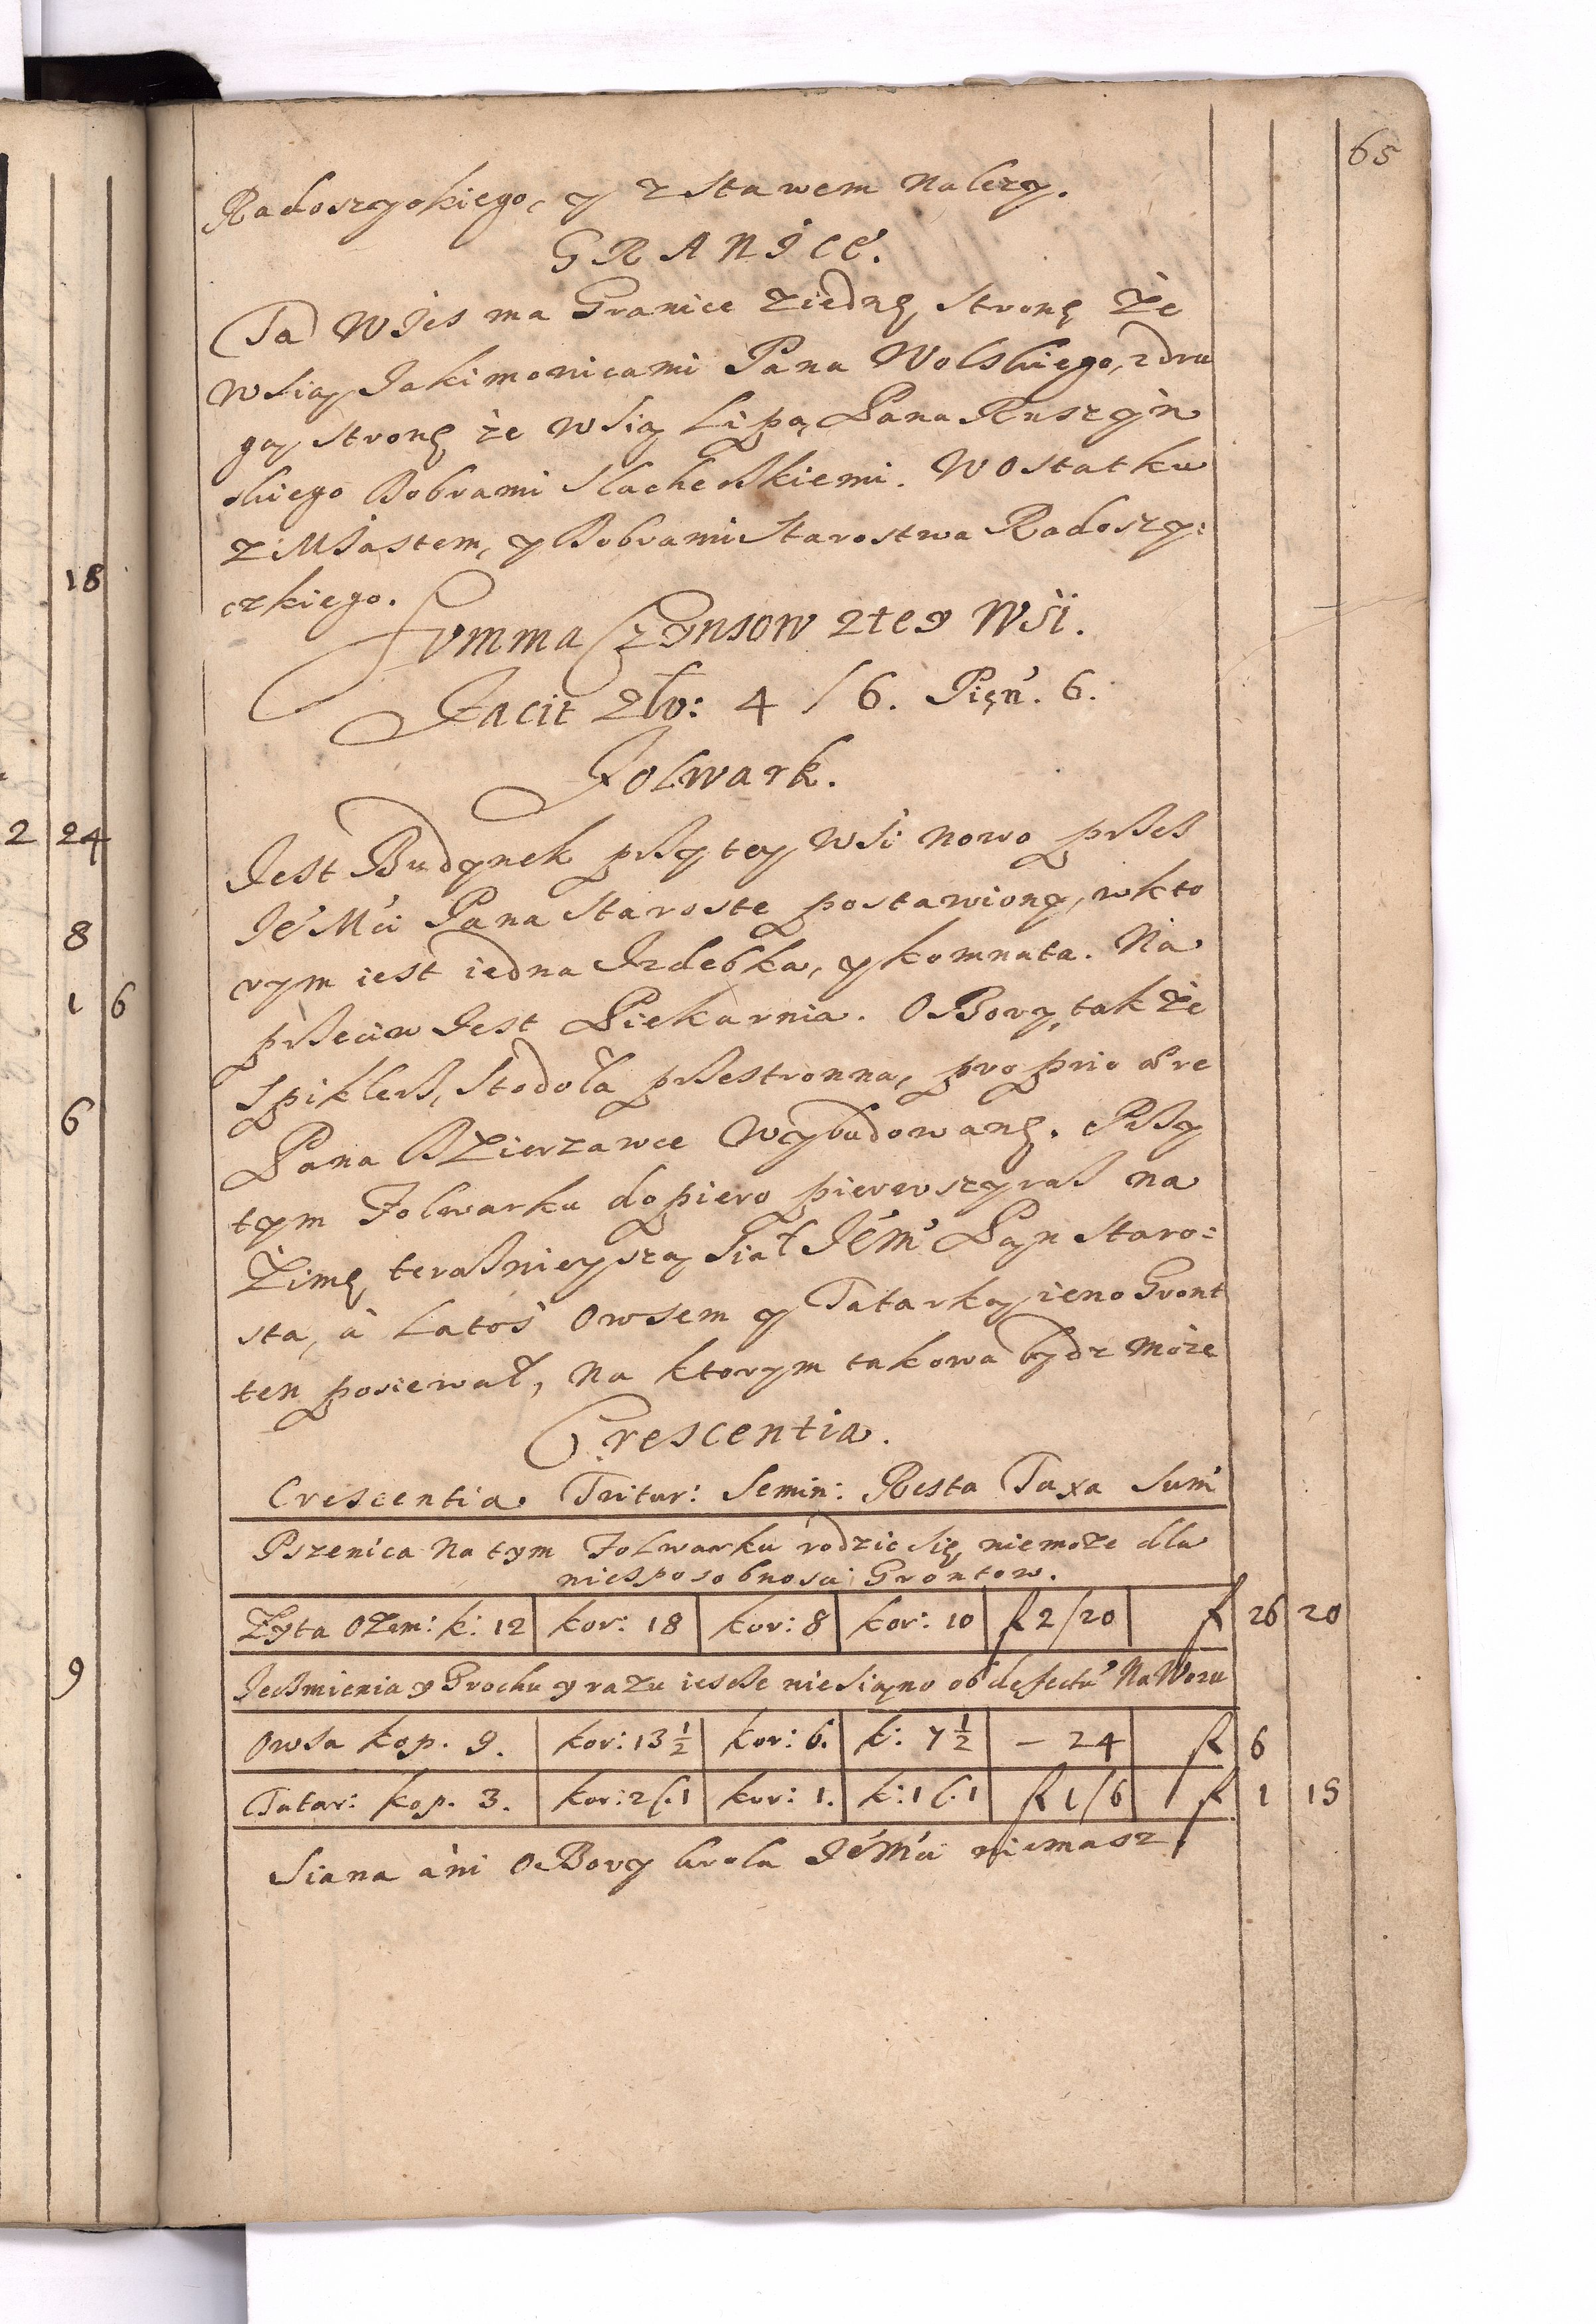 65
Radoszyckiego, y z Stawem należy.
GRANICE.
Ta Wies ma Granice ziednę Stronę że
wsią Jakimowicami Pana Wolskiego, z dru
gą Stronę że wsią Lipą, Pana Ruszÿn
skiego Dobrami Slacheßkiemi. W Ostatku
z Miastem, y Dobrami Starostwa Radoszy:
czkiego.
Summa Czynsow z tey Wsi.
Facit Zło: 4 / 6. Pień. 6.
Folwark.
Jest Budynek przy tey Wsi nowo przes
Je Mći Pana Staroste postawiony, w kto
rym iest iedna Izdebka, y komnata. Na
przeciw Jest Piekarnia. Obory, także
Spiklerz, Stodoła przestronna, proprio ære
Pana Dzierzawce Wybudowanę. Przy
tym Folwarku dopiero pierwszy raz na
Zimę teraznieyszą Siał JeMć Pan Staro:
sta, à Latoś Owsem y Tatarką ieno Gront
ten posiewał, na ktorym takowa bydz może
Crescentia.
Crescentia Tritur: Semin: Resta Taxa Sum
Pszenica na tym Folwarku rodzic się niemoże dla
niesposobnosci Grontow.
Zyta Ozem: k: 12 | kor: 18 | kor: 8 | kor: 10 | f 2/20 | f 26 | 20
Jeczmienia y Grochu y razu iescze nie siąno ob defectũ Nawozu
Owsa kop. 9. | kor: 13 1/2 | kor: 6. | k: 7 1/2 | – 24 | f 6
Tatar: kop. 3. | kor: 2 /. 1 | kor: 1. | k: 1 /. 1 | f 1/6 | f 1 | 15
Siana ani Obory krola JeMći niemasz.
18
2 24
8
1 6
6
9